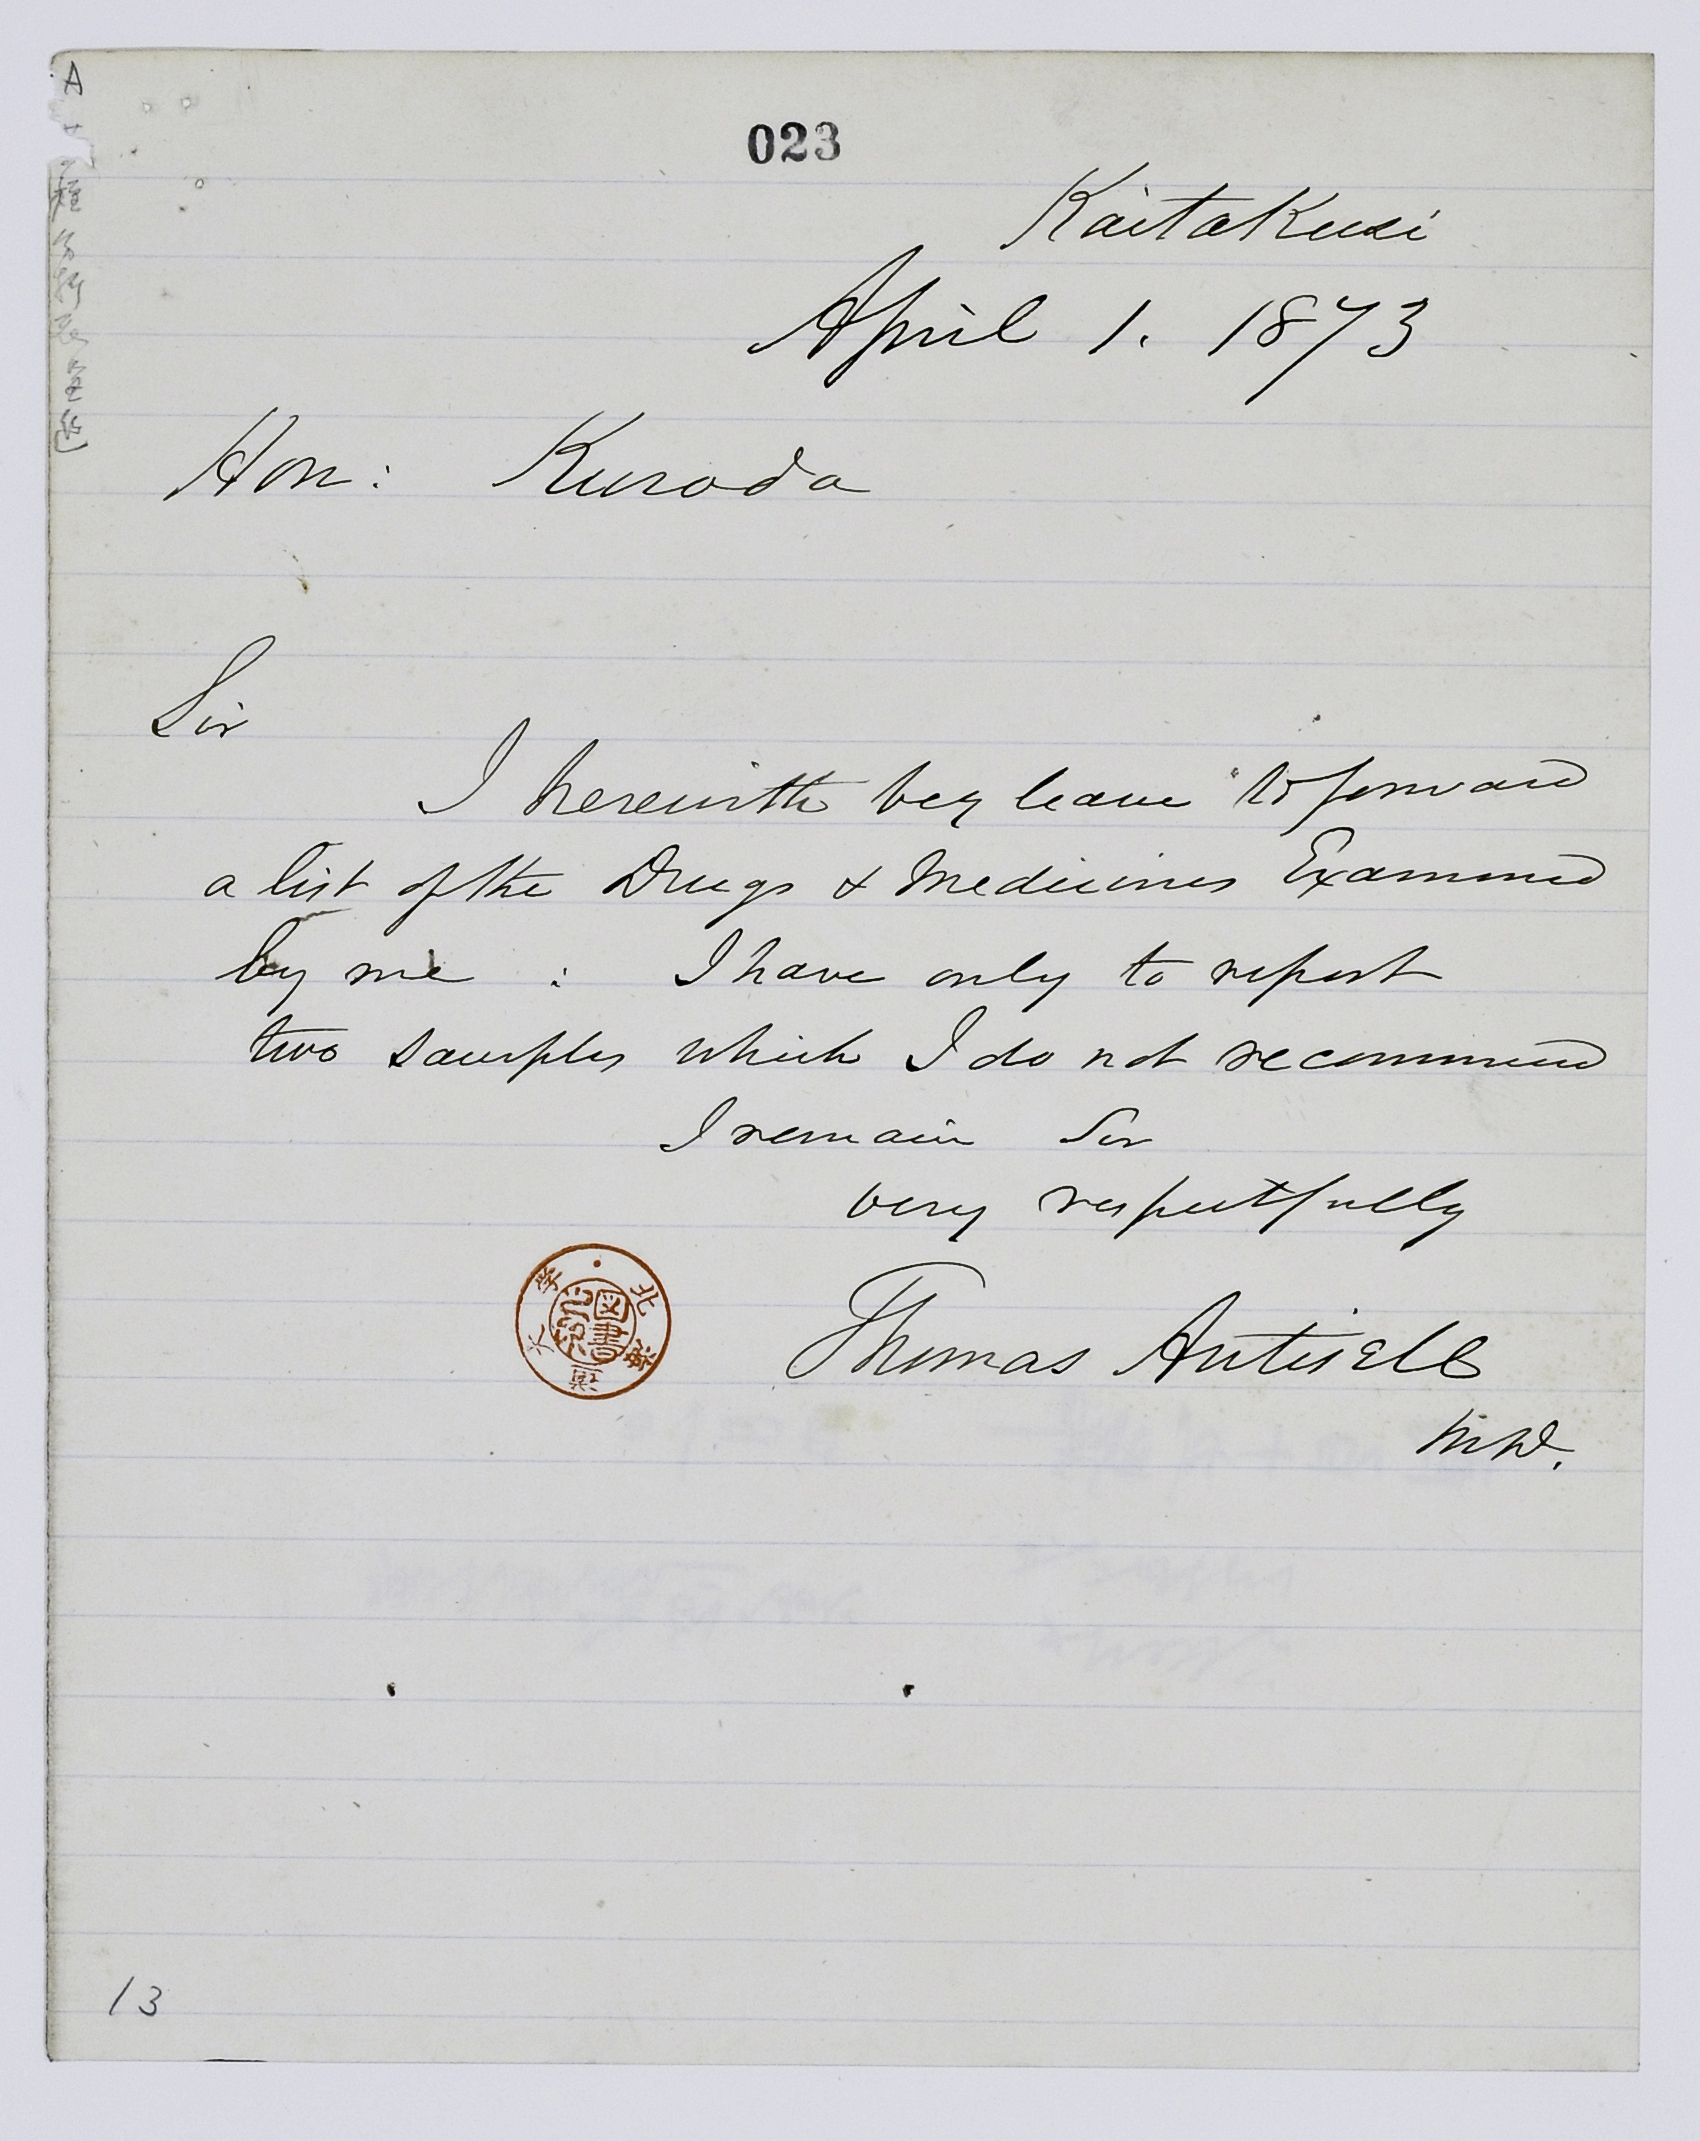 A
023
Kaitakusi
April 1. 1873
Hon: Kuroda
Sir
I herewith beg leave to forward
a list of the Drugs & Medicines Examined
by me : I have only to report
two samples which I do not recommend
I remain Sir
very respectfully
Thomas Antisell
M.D.
北海道大学
図書
13